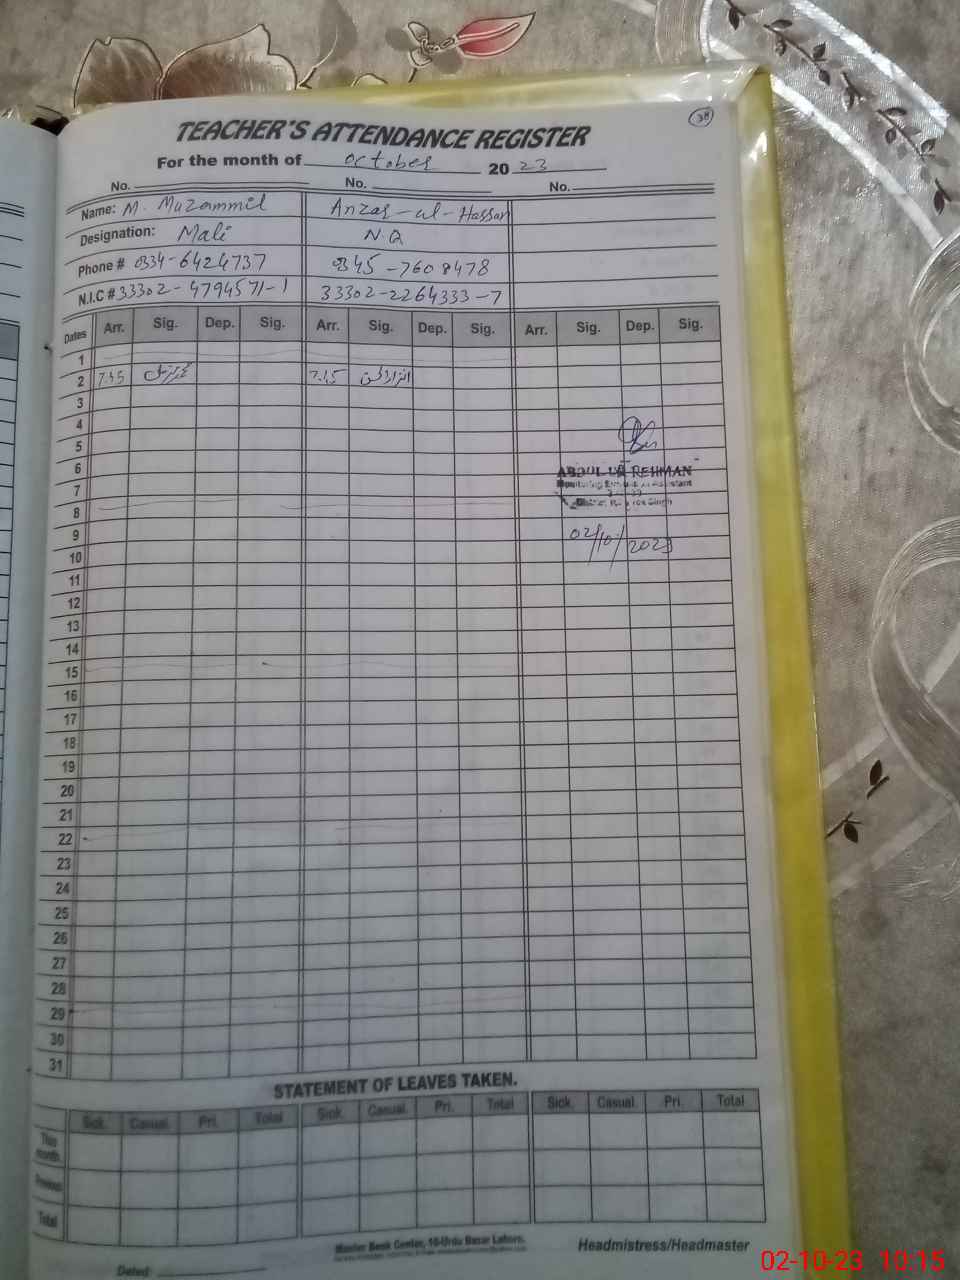 38
TEACHER'S ATTENDANCE REGISTER
For the month of October 2023
No. No. No.
Name: M. Muzammil Anzar-ul-Hassan
Designation: Mali N.Q
Phone # 0334-6424737 0345-7608478
N.I.C # 33302-4794571-1 33302-2264333-7
Dates Arr. Sig. Dep. Sig. Arr. Sig. Dep. Sig. Arr. Sig. Dep. Sig.
1
2 7:45 7:45
3
4
5
6
ABDUL UR REHMAN
7
8
9
02/10/2023
10
11
12
13
14
15
16
17
18
19
20
21
22
23
24
25
26
27
28
29
30
31
STATEMENT OF LEAVES TAKEN.
Sick. Casual. Pri. Total Sick. Casual. Pri. Total Sick. Casual. Pri. Total
This month.
Previous
Total
Master Book Center, 10-Urdu Bazar Lahore.
Headmistress/Headmaster
Dated:
02-10-23 10:15